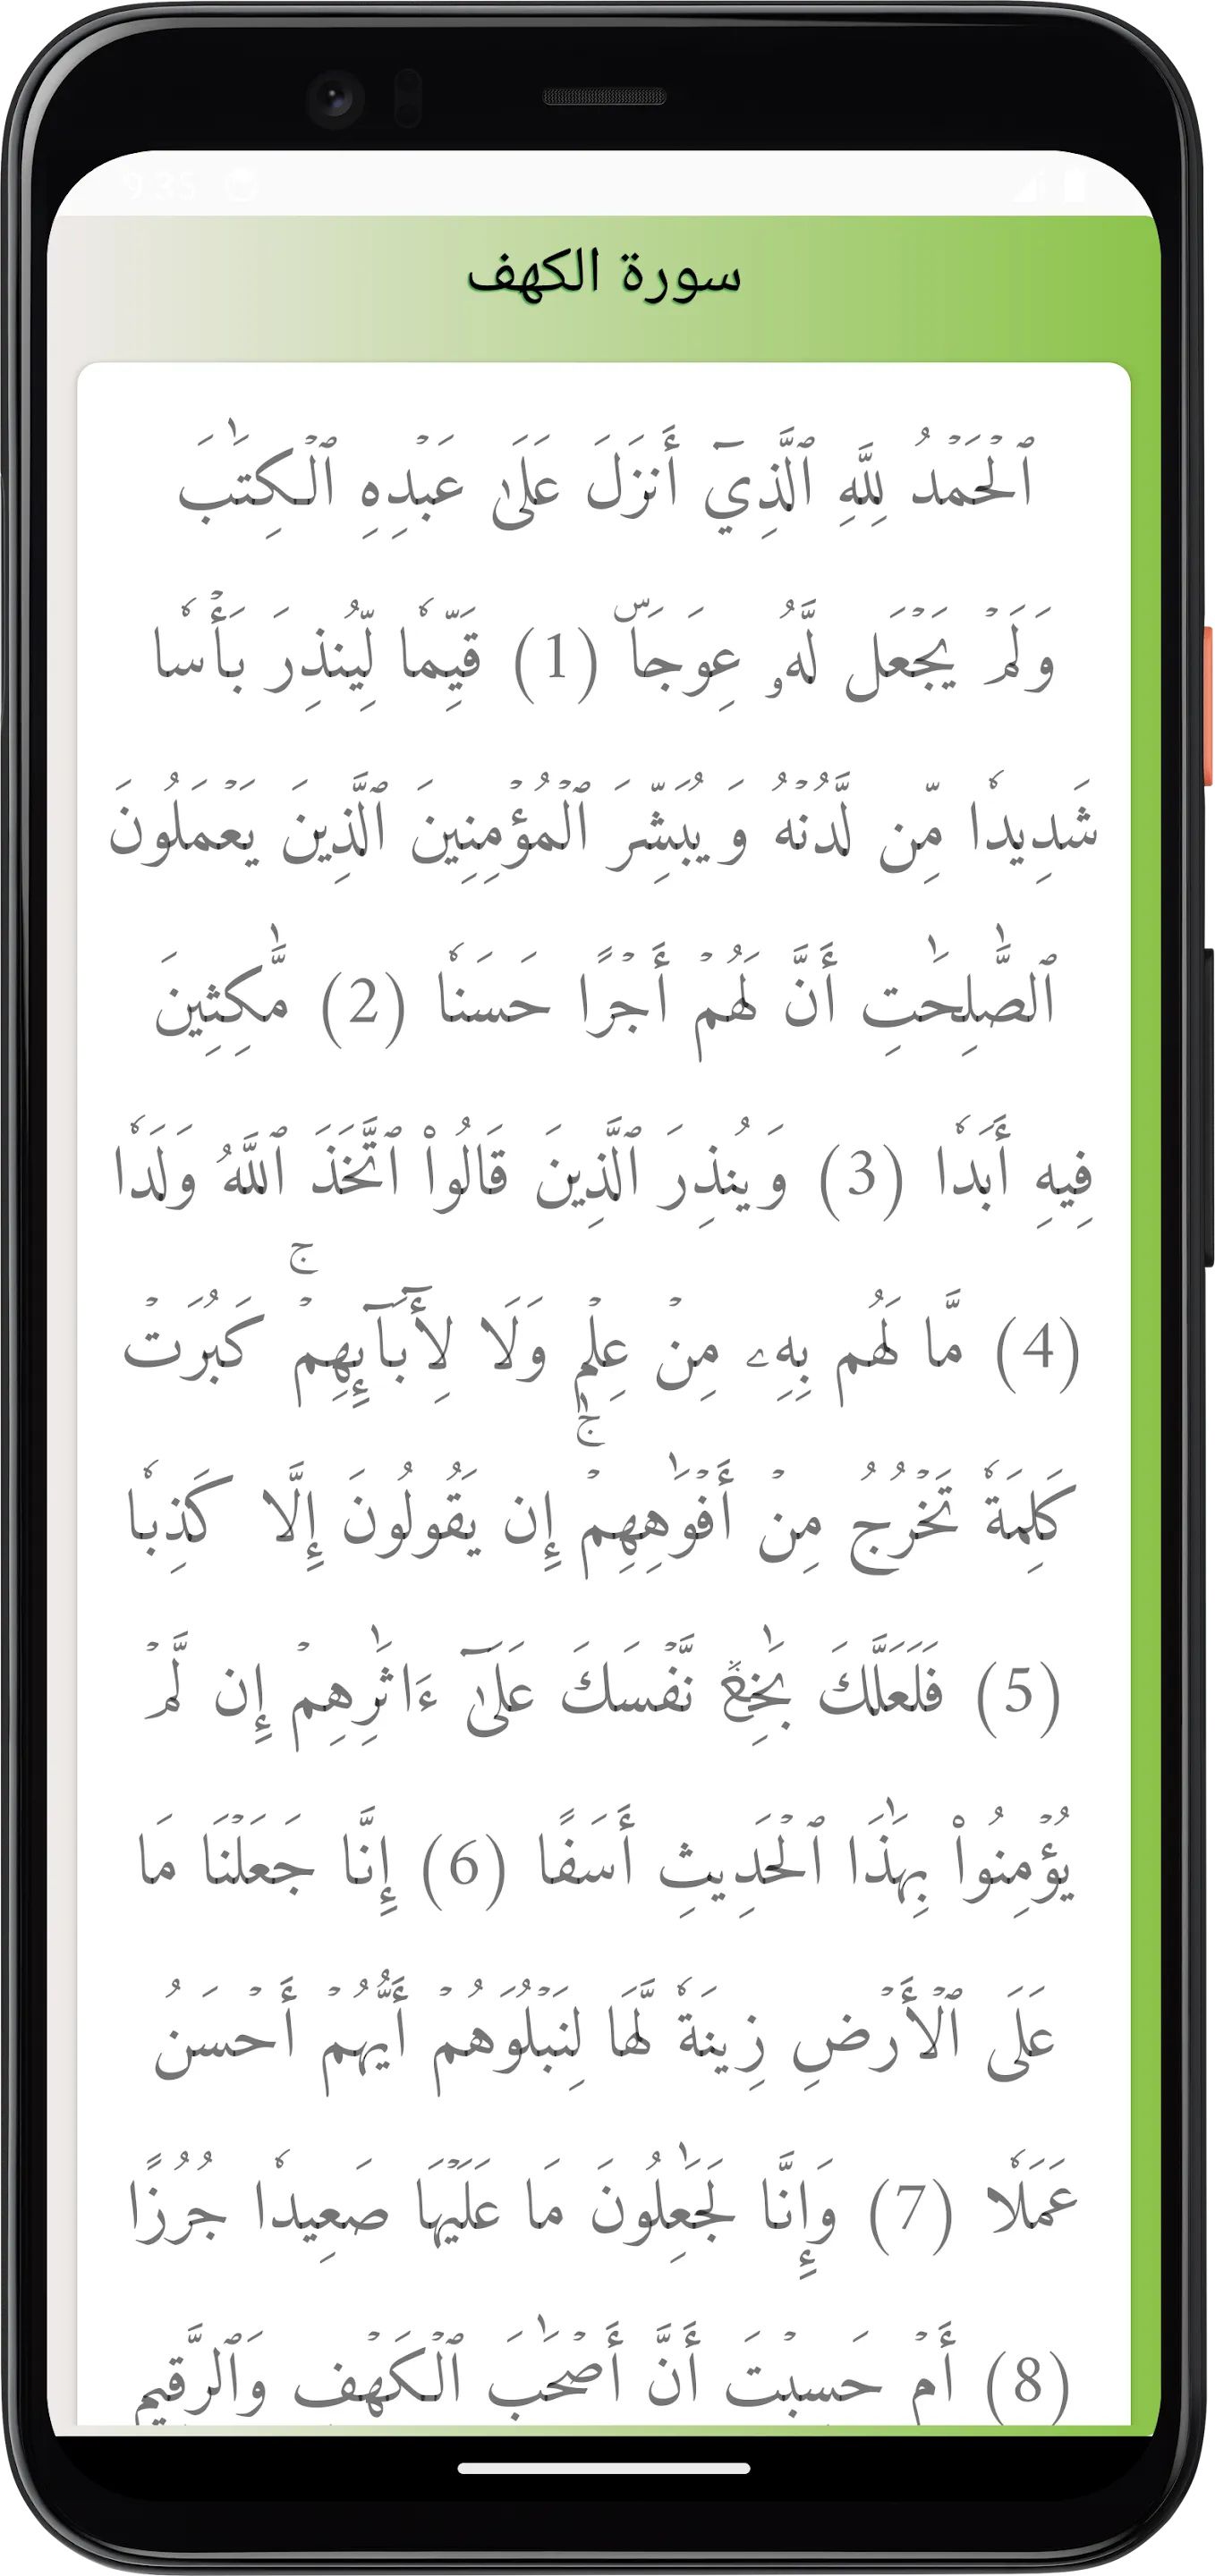 9:35
سورة الكهف
ٱلۡحَمۡدُ لِلَّهِ ٱلَّذِيٓ أَنزَلَ عَلَىٰ عَبۡدِهِ ٱلۡكِتَٰبَ
وَلَمۡ يَجۡعَل لَّهُۥ عِوَجَاۜ (1) قَيِّمٗا لِّيُنذِرَ بَأۡسٗا
شَدِيدٗا مِّن لَّدُنۡهُ وَيُبَشِّرَ ٱلۡمُؤۡمِنِينَ ٱلَّذِينَ يَعۡمَلُونَ
ٱلصَّٰلِحَٰتِ أَنَّ لَهُمۡ أَجۡرًا حَسَنٗا (2) مَّٰكِثِينَ
فِيهِ أَبَدٗا (3) وَيُنذِرَ ٱلَّذِينَ قَالُواْ ٱتَّخَذَ ٱللَّهُ وَلَدٗا
(4) مَّا لَهُم بِهِۦ مِنۡ عِلۡمٖ وَلَا لِأٓبَآئِهِمۡۚ كَبُرَتۡ
كَلِمَةٗ تَخۡرُجُ مِنۡ أَفۡوَٰهِهِمۡۚ إِن يَقُولُونَ إِلَّا كَذِبٗا
(5) فَلَعَلَّكَ بَٰخِعٞ نَّفۡسَكَ عَلَىٰٓ ءَاثَٰرِهِمۡ إِن لَّمۡ
يُؤۡمِنُواْ بِهَٰذَا ٱلۡحَدِيثِ أَسَفًا (6) إِنَّا جَعَلۡنَا مَا
عَلَى ٱلۡأَرۡضِ زِينَةٗ لَّهَا لِنَبۡلُوَهُمۡ أَيُّهُمۡ أَحۡسَنُ
عَمَلٗا (7) وَإِنَّا لَجَٰعِلُونَ مَا عَلَيۡهَا صَعِيدٗا جُرُزًا
(8) أَمۡ حَسِبۡتَ أَنَّ أَصۡحَٰبَ ٱلۡكَهۡفِ وَٱلرَّقِيمِ